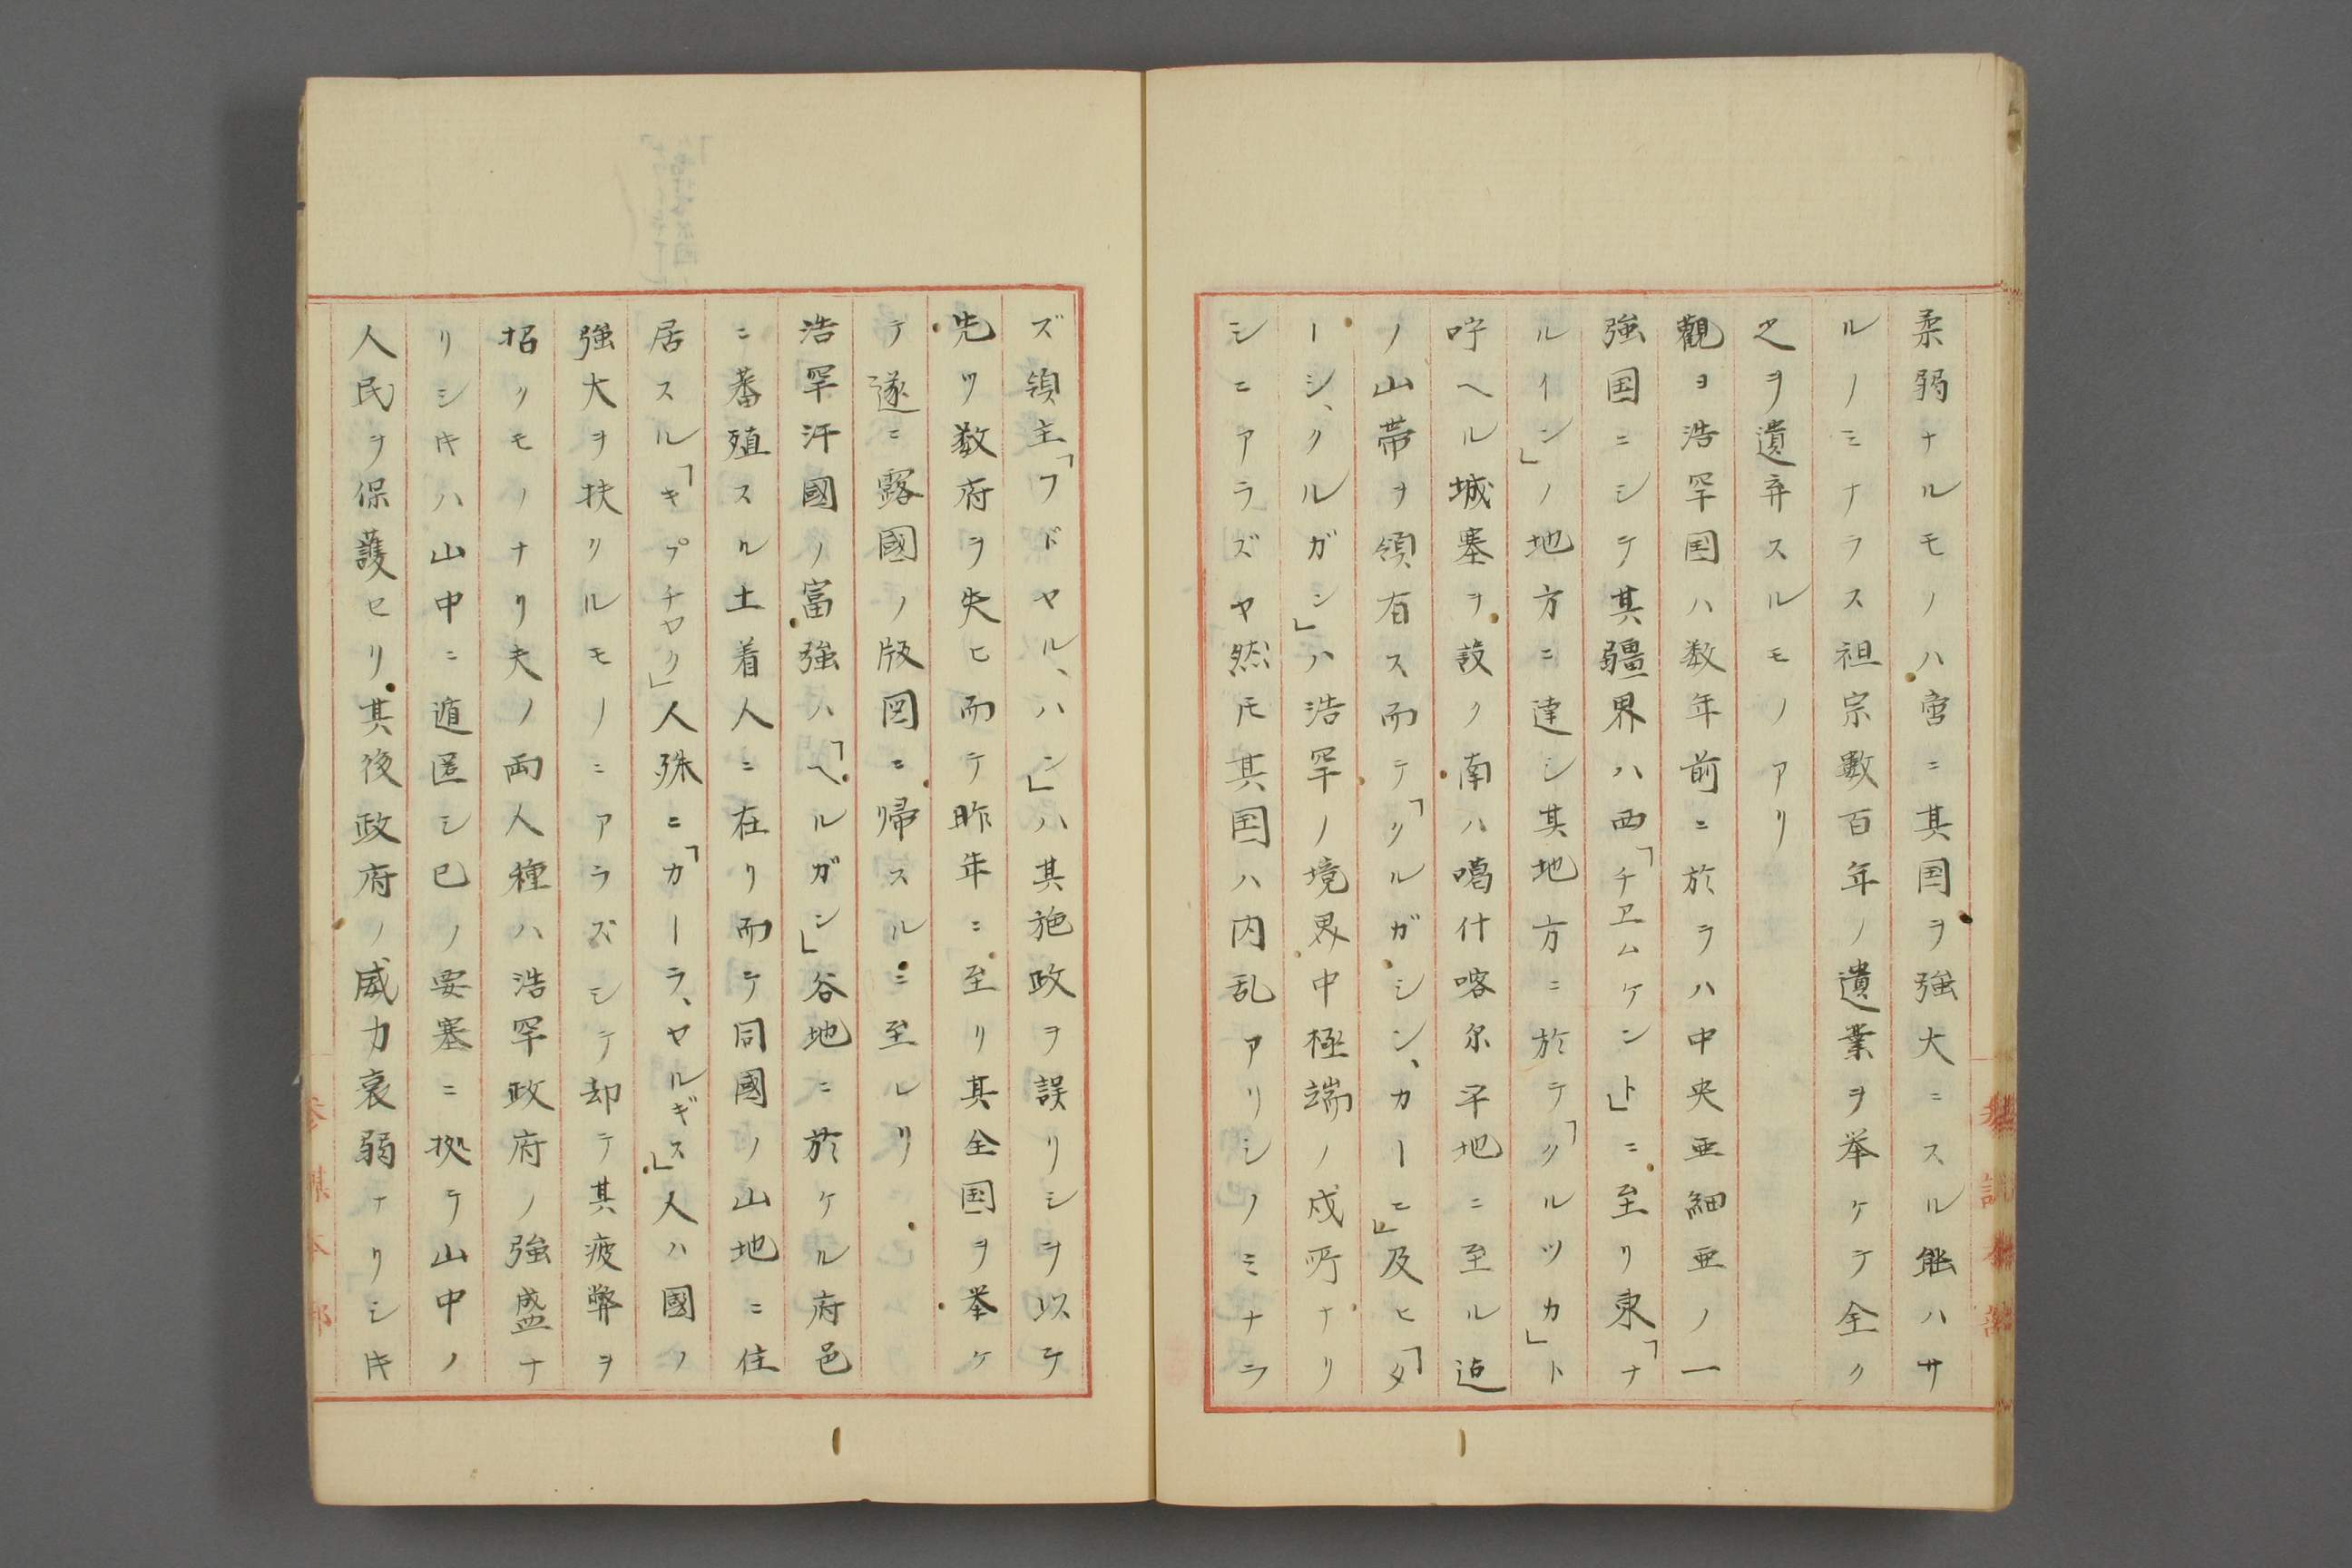 柔弱ナルモノハ啻ニ其国ヲ強大ニスル能ハサ
ルノミナラス祖宗數百年ノ遺業ヲ挙ケテ全ク
之ヲ遺弃スルモノアリ
觀ヨ浩罕国ハ数年前ニ於ラハ中央亜細亜ノ一
強国ニシテ其疆界ハ西「チヱムケント」ニ至リ東「ナ
ルイン」ノ地方ニ達シ其地方ニ於テ「クルツカ」ト
呼ヘル城塞ヲ設ク南ハ噶什喀尓平地ニ至ル迠
ノ山帯ヲ領有ス而テ「クルガシン、カーニ」及ヒ「タ
ーシ、クルガシ」ハ浩罕ノ境界中極端ノ戍所ナリ
シニアラズヤ然𪜈其国ハ内乱アリシノミナラ
ズ領主「フドヤル、ハン」ハ其施政ヲ誤リシヲ以テ
先ツ数府ヲ失ヒ而テ昨年ニ至リ其全国ヲ挙ケ
テ遂ニ露國ノ版図ニ帰スルニ至レリ
浩罕汗國ノ富強ハ「ヘルガン」谷地ニ於ケル府邑
ニ蕃殖スル土着人ニ在リ而テ同國ノ山地ニ住
居スル「キプチヤク」人殊ニ「カーラ、ヤルギス」人ハ國ノ
強大ヲ扶クルモノニアラズシテ却テ其疲弊ヲ
招クモノナリ夫ノ両人種ハ浩罕政府ノ強盛ナ
リシキハ山中ニ遁匿シ已ノ要塞ニ拠テ山中ノ
人民ヲ保護セリ其後政府ノ威力衰弱ナリシキ